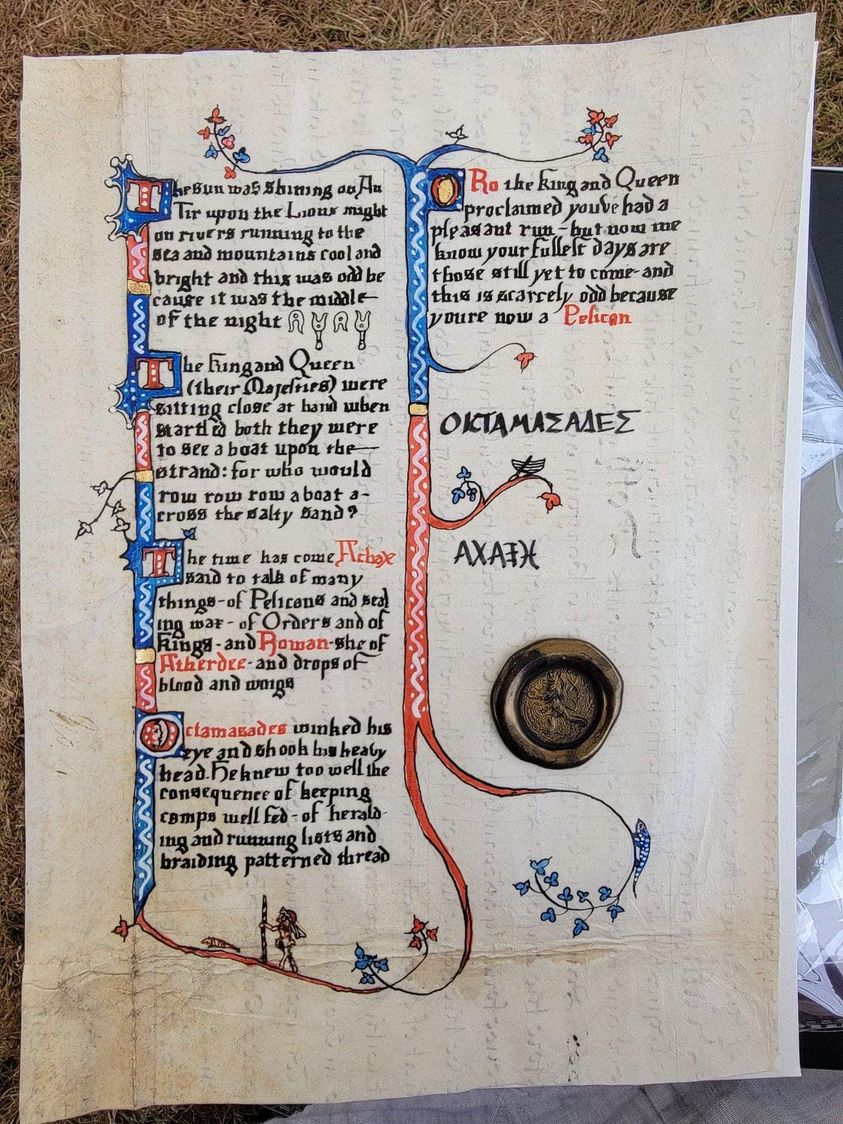 The sun was shining on An
Tir upon the Lions might
on rivers running to the
sea and mountains cool and
bright and this was odd be
cause it was the middle
of the night
The King and Queen
(their Majesties) were
sitting close at hand when
startled both they were
to see a boat upon the
strand: for who would
row row row a boat a-
cross the salty sand?
The time has come Achaxe
said to talk of many
things - of Pelicans and seal
ing wax - of Orders and of
Kings - and Rowan - she of
and drops of
blood and wings
Octamasades winked his
eye and shook his heavy
head. He knew too well the
consequence of keeping
camps well fed - of herald-
ing and running lists and
braiding patterned thread
O Ro the King and Queen
proclaimed youve had a
pleasant run - but now me
know your fullest days are
those still yet to come - and
this is scarcely odd because
youre now a Pelican
ΟΚΤΑΜΑΣΑΔΕΣ
ΑΧΑΞΗ